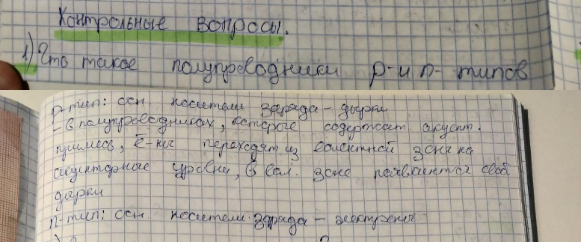 Контрольные вопросы.
1) Что такое полупроводники p- и n- типов
p-тип: осн носители заряда - дырки
- в полупроводниках, которые содержат акцепт.
примесь, ē-ны переходят из валентной зоны на
акцепторные уровни, в вал. зоне появляются своб
дырки
n-тип: осн носители заряда - электроны